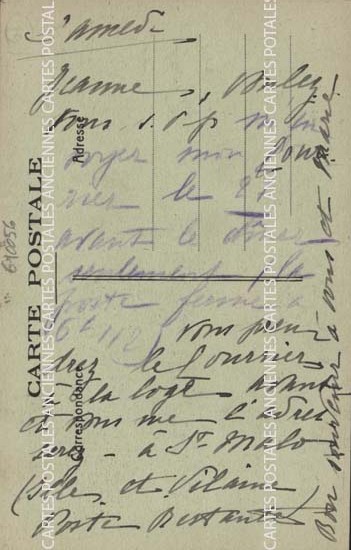 Samedi
Jeanne, Voulez
vous s.v.p. m'en
voyer mon cour
rier le 2
avant le dîner
seulement, la
poste ferme à
6h 1/2 vous pren-
drez le courrier
à la loge avant
et vous me l'adres
serez - à St Malo
(Ille et Vilaine
Poste Restante)
Bon souvenir à vous et
CARTE POSTALE
Adresse
Correspondance
640056
CARTES POSTALES ANCIENNES CARTES POSTALES ANCIENNES CARTES POSTALES